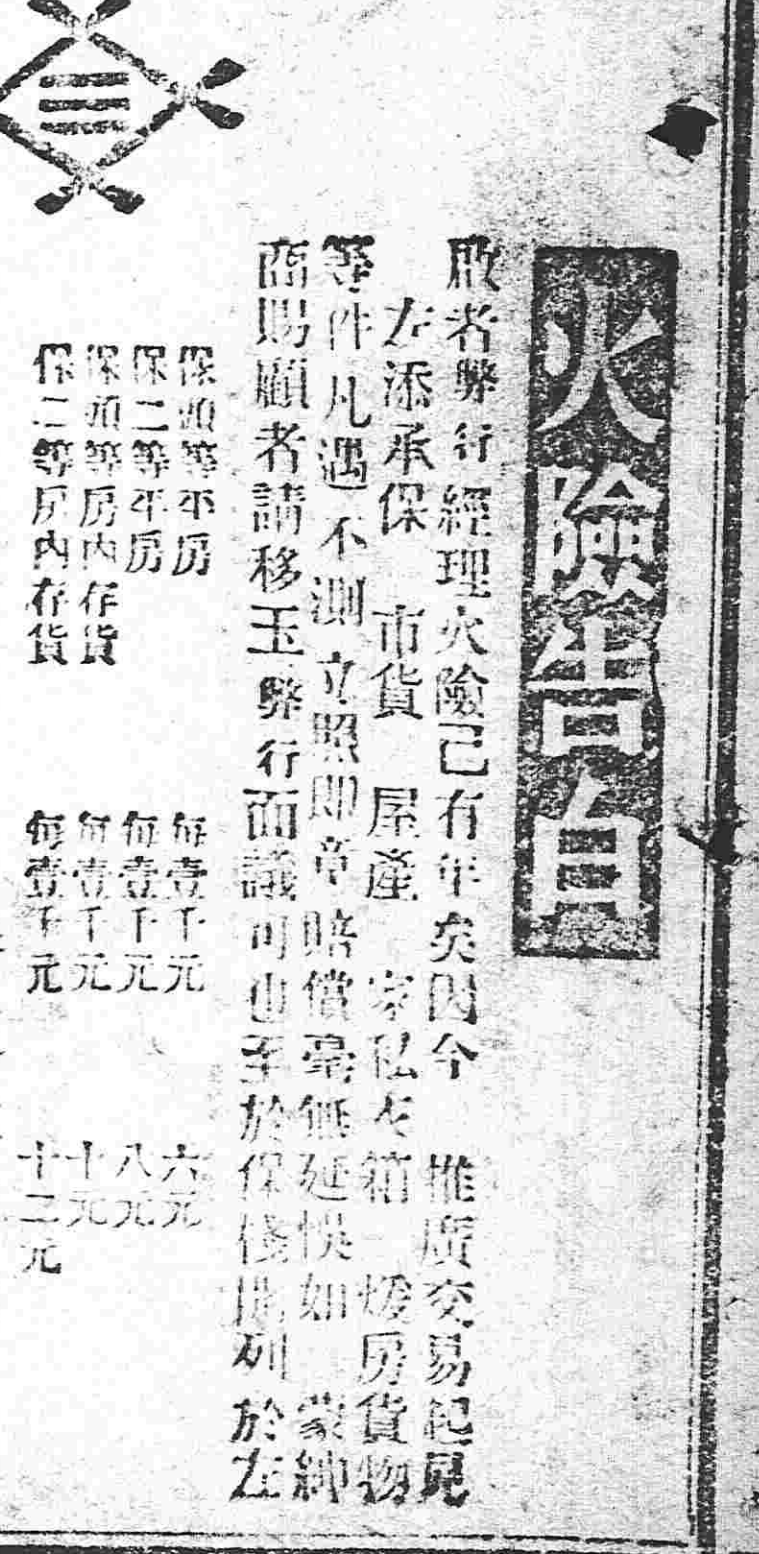 火險告白
敬者弊行經理火險已有年矣因今 推廣交易起見
左添承保 市貨 屋產 家私衣箱 煖房貨物
等件凡遇不測立照即章賠償毫無延悞如 蒙紳
商賜顧者請移玉弊行面議可也至於保價開列於左
保頭等平房 每壹千元 六元
保二等平房 每壹千元 八元
保頭等房內存貨 每壹千元 十元
保二等房內存貨 每壹千元 十二元
三